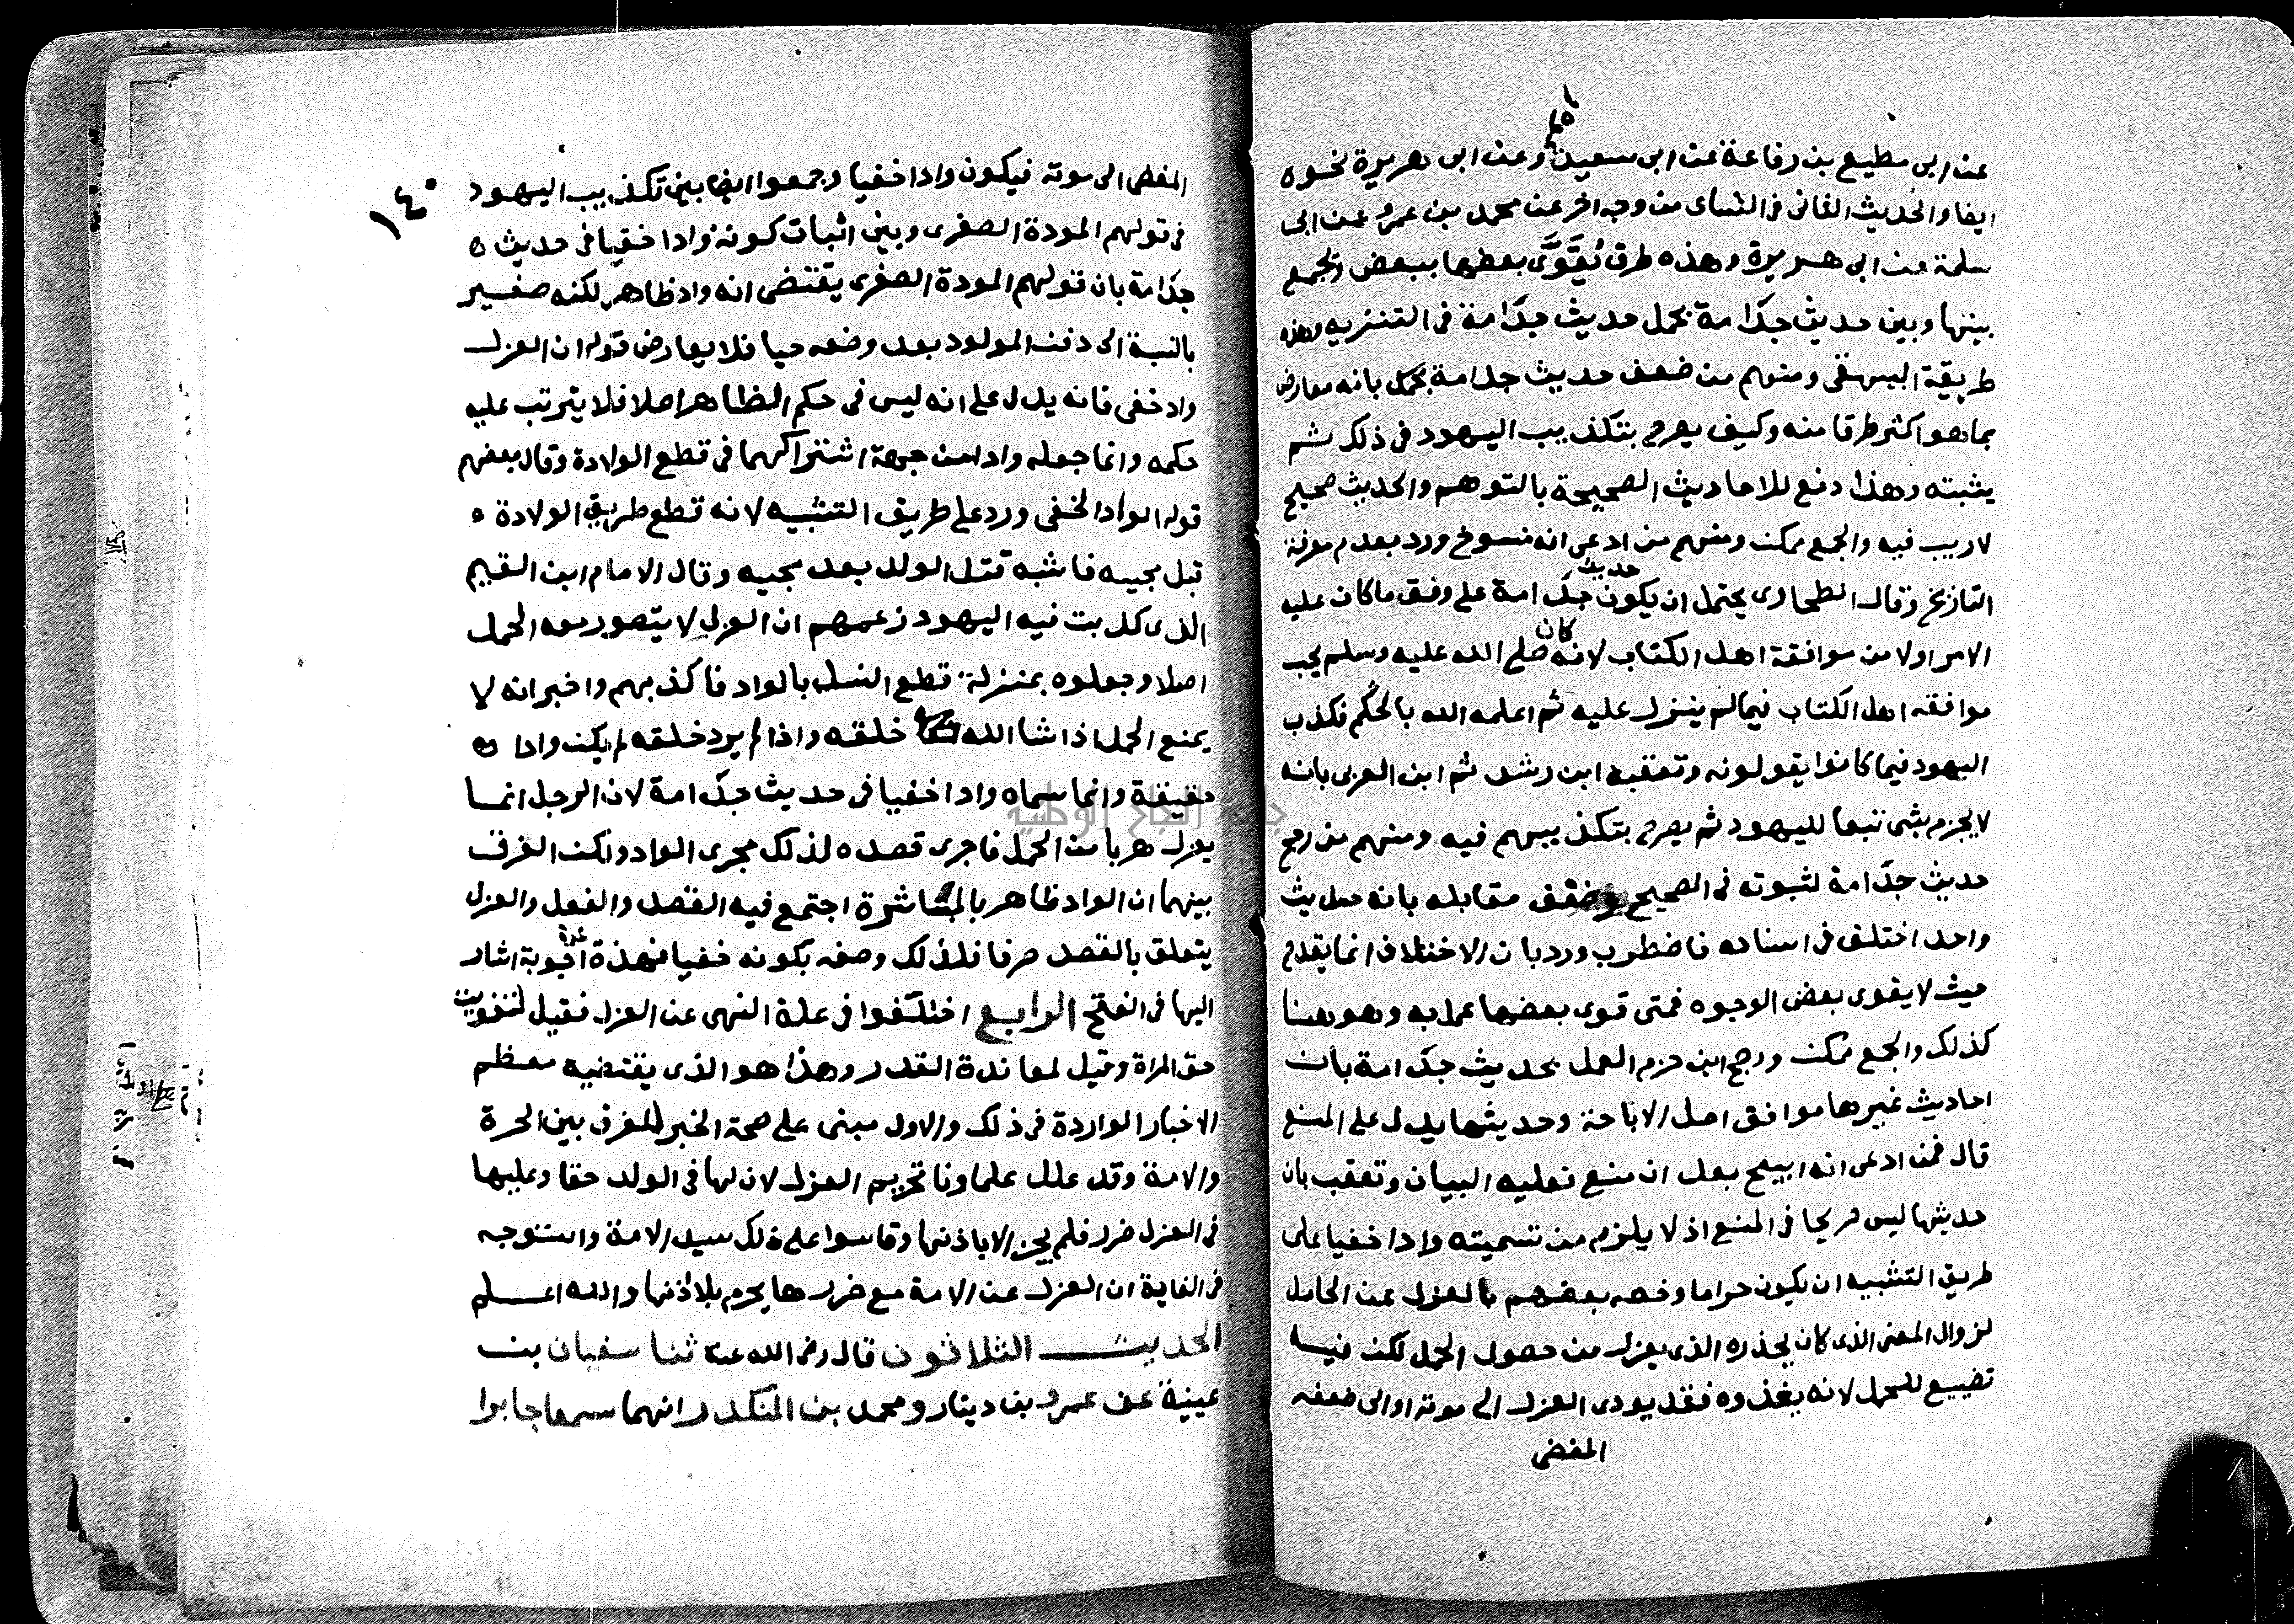 عن ابى مطيع بن رفاعة عن ابى سعيد وعن ابى هريرة نحوه
ايضا والحديث الثانى فى النساى من وجه اخر عن محمد بن عمرو عن ابى
سلمة عن ابى هريرة وهذه طرق يُقَوَّى بعضها ببعض وتجمع
بينها وبين حديث جدامة بحمل حديث جدامة فى التنزيه وهذه
طريقة البيهقى ومنهم من ضعف حديث جدامة بانه معارض
بما هو اكثر طرقا منه وكيف يصرح بتكذيب اليهود فى ذلك ثم
يثبته وهذا دفع للاحاديث الصحيحة بالتوهم والحديث صحيح
لا ريب فيه والجمع ممكن ومنهم من ادعى انه منسوخ ورد بعدم معرفة
التاريخ وقال الطحاوى يحتمل ان يكون حديث جدامة على وفق ما كان عليه
الامر اولا من موافقة اهل الكتاب لانه كان صلى الله عليه وسلم يحب
موافقه اهل الكتاب فيما لم ينزل عليه ثم اعلمه الله بالحكم فكذب
اليهود فيما كانوا يقولونه وتعقبه ابن رشد ثم ابن العربى بانه
لا يجزم بشى تبعا لليهود ثم يصرح بتكذيبهم فيه ومنهم من رجح
حديث جدامة لثبوته فى الصحيح وضعف مقابله بانه حديث
واحد اختلف فى اسناده فاضطرب ورد بان الاختلاف انما يقدح
حيث لا يقوى بعض الوجوه فمتى قوى بعضها عمل به وهو هنا
كذلك والجمع ممكن ورجح ابن حزم العمل بحديث جدامة بان
احاديث غيرها موافق اصل الاباحة وحديثها يدل على المنع
قال فمن ادعى انه ابيح بعد ان منع فعليه البيان وتعقب بان
حديثها ليس صريحا فى المنع اذ لا يلزم من تسميته وادا خفيا على
طريق التشبيه ان يكون حراما وخصه بعضهم بالعزل عن الحامل
لزوال المعنى الذى كان يحذره الذى يعزل من حصول الحمل لكن فيه
تضييع للحمل لانه يغذوه فقد يودى العزل الى موته او الى ضعفه
المفضى
١٤٠
المفضى الى موته فيكون وادا خفيا وجمعوا ايضا بين تكذيب اليهود
فى قولهم المودة الصغرى وبين اثبات كونه وادا خفيا فى حديث
جدامة بان قولهم المودة الصغرى يقتضى انه واد ظاهر لكنه صغير
بالنسبة الى دفن المولود بعد وضعه حيا فلا يعارض قوله ان العزل
واد خفى فانه يدل على انه ليس فى حكم الظاهر اصلا فلا يترتب عليه
حكمه وانما جعله وادا من جهة اشتراكهما فى قطع الولادة وقال بعضهم
قوله الواد الخفى ورد على طريق التشبيه لانه قطع طريق الولادة
قبل مجيبه فاشبه قتل الولد بعد مجيه وقال الامام ابن القيم
الذى كذبت فيه اليهود زعمهم ان العزل لا يتصور معه الحمل
اصلا وجعلوه بمنزلة قطع النسل بالواد فاكذبهم واخبر انه لا
يمنع الحمل اذا شا الله خلقه واذا لم يرد خلقه لم يكن وادا
حقيقة وانما سماه وادا خفيا فى حديث جدامة لان الرجل انما
يعزل هربا من الحمل فاجرى قصده لذلك مجرى الواد ولكن الفرق
بينهما ان الواد ظاهر بالمباشرة اجتمع فيه القصد والفعل والعزل
يتعلق بالقصد صرفا فلذلك وصفه بكونه خفيا فهذه عدة اجوبة اشار
اليها فى الفتح الرابع اختلفوا فى علة النهى عن العزل فقيل لتفويت
حق المراة وقيل لمعاندة القدر وهذا هو الذى يقتضيه معظم
الاخبار الواردة فى ذلك والاول مبنى على صحة الخبر المفرق بين الحرة
والامة وقد علل علماونا تحريم العزل لان لها فى الولد حقا وعليها
فى العزل ضرر فلم يجز الا باذنها وقاسوا على ذلك سيد الامة واستوجه
فى الغاية ان العزل عن الامة مع ضررها يحرم بلا اذنها والله اعلم
الحديث الثلاثون قال رضى الله عنه ثنا سفيان بن
عيينة عن عمرو بن دينار ومحمد بن المنكدر انهما سمعا جابرا
جامعة النجاح الوطنية